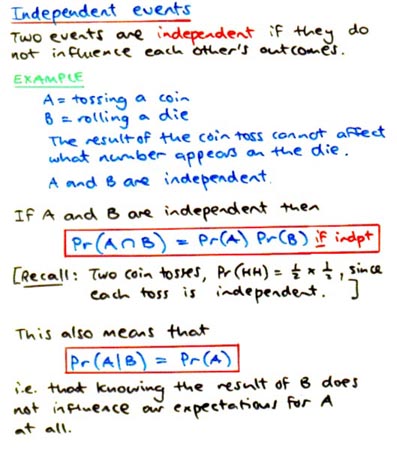 Independent events
Two events are independent if they do
not influence each other's outcomes.
EXAMPLE
A = tossing a coin
B = rolling a die
The result of the coin toss cannot affect
what number appears on the die.
A and B are independent.
If A and B are independent then
Pr(A∩B) = Pr(A) Pr(B) if indpt
[Recall: Two coin tosses, Pr(HH) = ½ × ½, since
each toss is independent. ]
This also means that
Pr(A|B) = Pr(A)
i.e. that knowing the result of B does
not influence our expectations for A
at all.